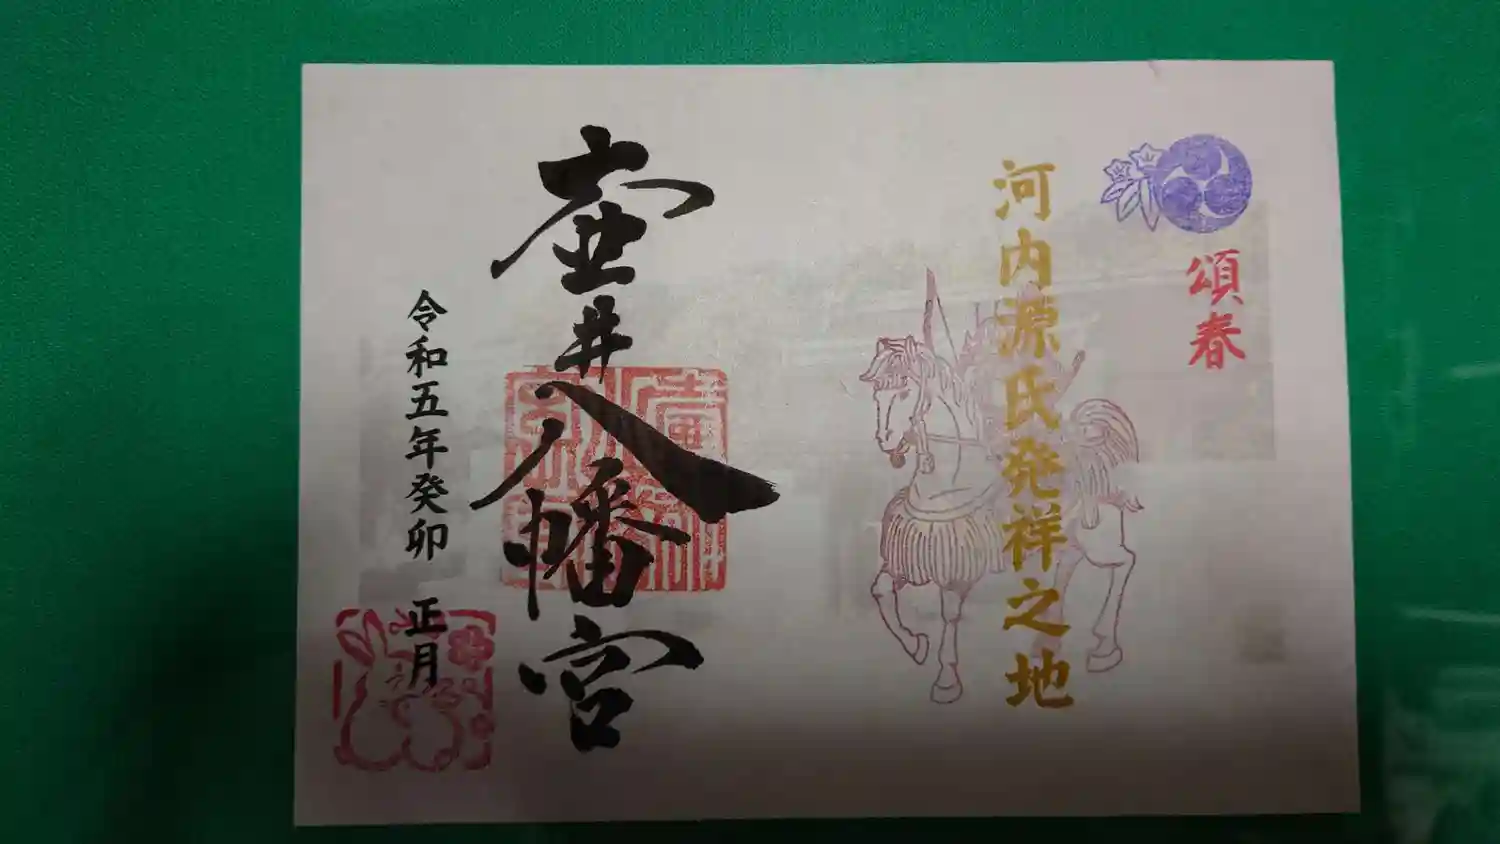 頌春
河内源氏発祥之地
壷井八幡宮
令和五年癸卯 正月